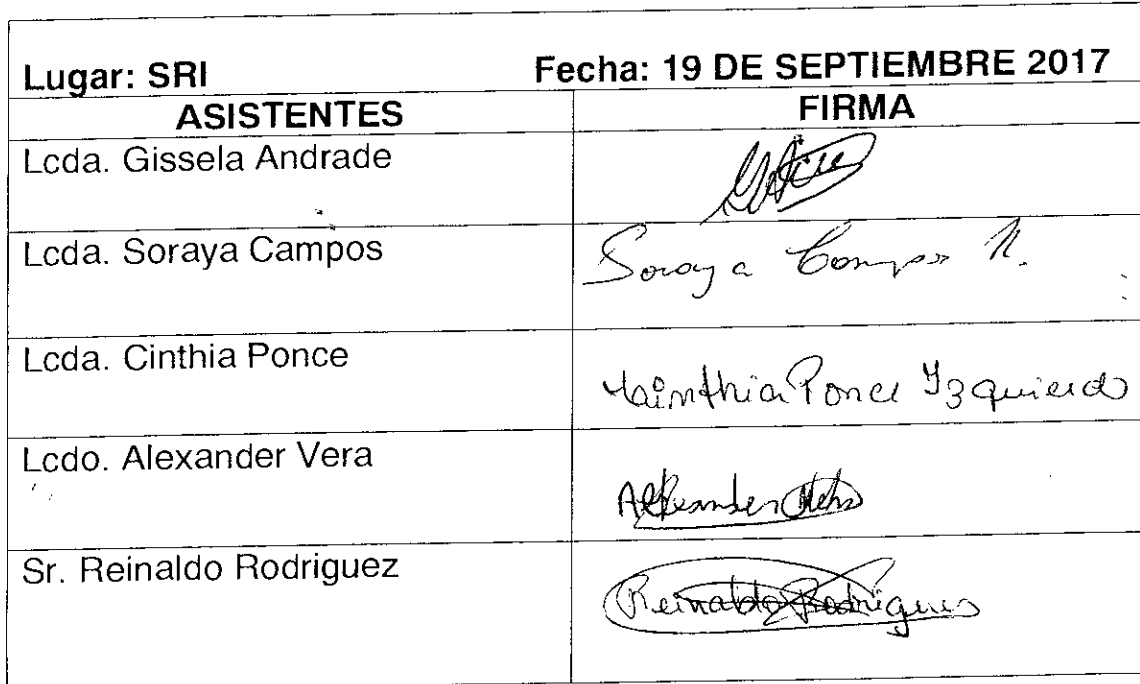 Lugar: SRI Fecha: 19 DE SEPTIEMBRE 2017
ASISTENTES FIRMA
Lcda. Gissela Andrade
Lcda. Soraya Campos Soraya Campos N.
Lcda. Cinthia Ponce Cinthia Ponce Izquierdo
Lcdo. Alexander Vera Alexander Vera
Sr. Reinaldo Rodriguez Reinaldo Rodrigues